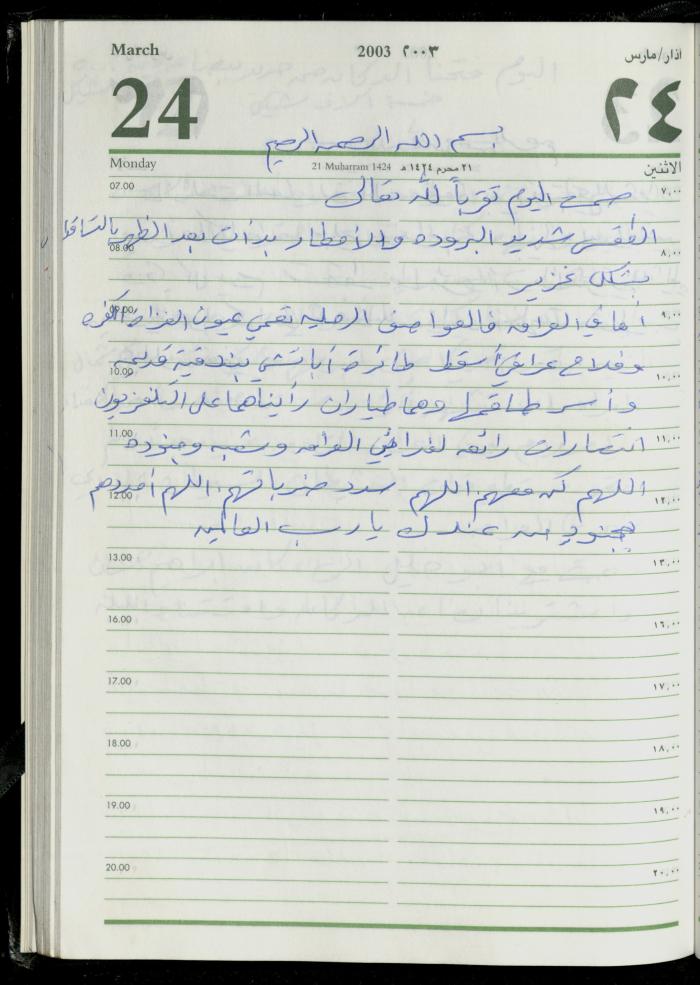 March 2003 ٢٠٠٣ اذار/مارس
24 ٢٤
بسم الله الرحمن الرحيم
Monday 21 Muharram 1424 ٢١ محرم ١٤٢٤ هـ الاثنين
07.00 صمت اليوم تقرباً لله تعالى ٧,٠٠
الطقس شديد البروده والأمطار بدأت بعد الظهر بالتساقط
08.00 ٨,٠٠
بشكل غزير
09.00 أما في العراق فالعواصف الرملية تعمي عيون الغزاة الكفره ٩,٠٠
وفلاح عراقي أسقط طائرة أباتشي ببندقية قديمة
10.00 ١٠,٠٠
وأسر طاقمها وهما طياران رأيناهما على التلفزيون
11.00 انتصارات رائعه لفدائيي العراق وشعبه وجنوده ١١,٠٠
اللهم كن معهم اللهم سدد ضرباتهم، اللهم أمددهم
12.00 ١٢,٠٠
بجنود من عندك يا رب العالمين
13.00 ١٣,٠٠
16.00 ١٦,٠٠
17.00 ١٧,٠٠
18.00 ١٨,٠٠
19.00 ١٩,٠٠
20.00 ٢٠,٠٠